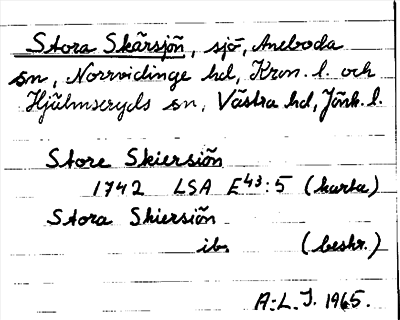 Stora Skärsjön, sjö, Aneboda
sn, Norrvidinge hd, Kron. l. och
Hjälmseryds sn, Västra hd, Jönk. l.
Store Skiersiön
1742 LSA E43:5 (karta)
Stora Skiersiön
ib. (beskr.)
A.L.J. 1965.